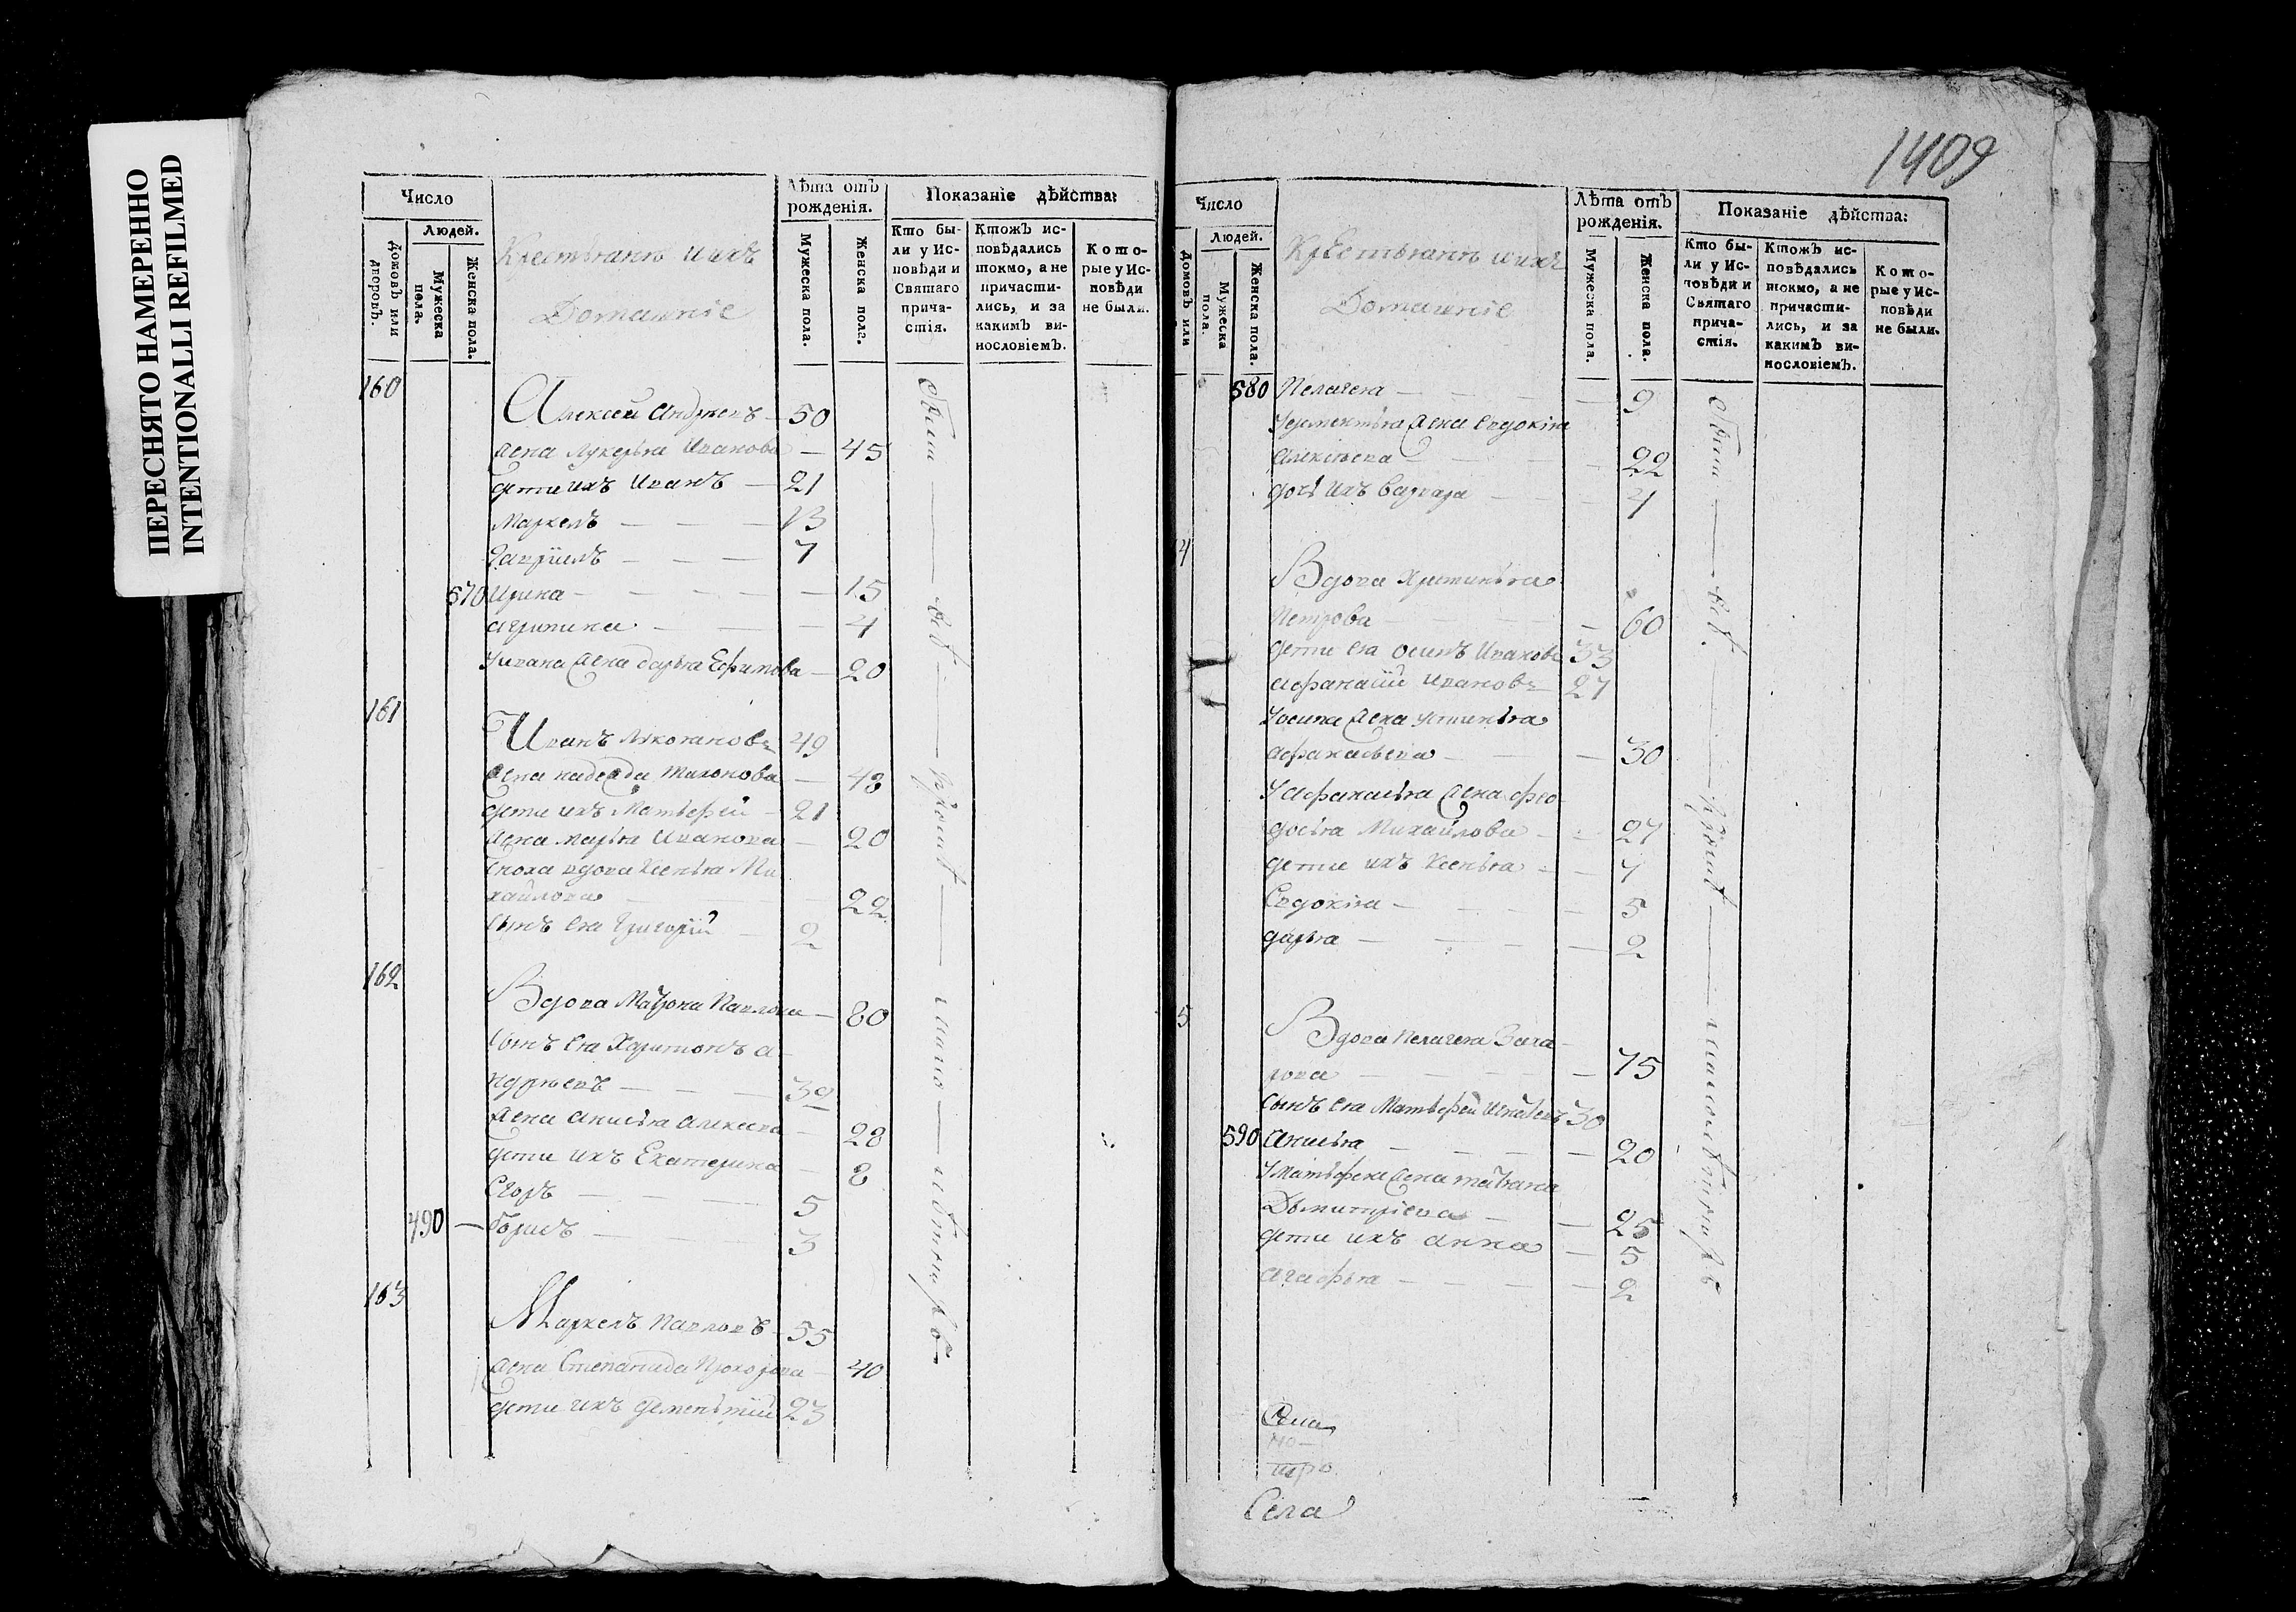 ПЕРЕСНЯТО НАМЕРЕННО
INTENTIONALLI REFILMED
Число
Людей.
Домовъ или дворовъ.
Мужеска пола.
Женска пола.
Крестьянѣ и ихъ
Домашніе
Лѣта отъ рожденія.
Мужеска пола.
Женска пола.
Показаніе дѣйства:
Кто бы-
ли у Ис-
повѣди и
Святаго
прича-
стія.
Ктожъ ис-
повѣдались
токмо, а не
причасти-
лись, и за
какимъ ви-
нословіемъ.
Кото-
рые у Ис-
повѣди
не были.
160
Алексѣй Андреевъ — 50
жена Лукерья Иванова — 45
дети ихъ Иванъ — 21
Маркелъ — 13
Гавріилъ — 7
570 Ирина — 15
Агрипина — 4
У Ивана жена Дарья Ефимова — 20
161
Иванъ 49
жена Надежда Тихонова — 43
дети ихъ Матьфей — 21
жена Марья Иванова — 20
сноха вдова Ксенья Ми
хайлова — 22
сынъ ея Григорій — 2
162
Вдова Матрона Павлова — 80
сынъ ея Харитонъ а-
ндреевъ — 39
жена Анисья Алексеева — 28
дети ихъ Екатерина — 8
Егоръ — 5
490 — Борисъ — 3
163
Маркелъ Павловъ 55
жена Степанида Прохорова — 40
дети ихъ Дементій 23
1409
Число
Людей.
Домовъ или
Мужеска пола.
Женска пола.
Крестьянѣ и ихъ
Домашніе
Лѣта отъ рожденія.
Мужеска пола.
Женска пола.
Показаніе дѣйства:
Кто бы-
ли у Ис-
повѣди и
Святаго
прича-
стія.
Ктожъ ис-
повѣдались
токмо, а не
причасти-
лись, и за
какимъ ви-
нословіемъ.
Кото-
рые у Ис-
повѣди
не были.
580 Пелагея — 9
У Дементья жена Евдокія
Алексѣева — 22
дочь ихъ Варвара — 4
4
Вдова Христинья
Петрова — 60
дети ея Осипъ Ивановъ 33
Афанасій Ивановъ — 27
У Осипа жена Устинья
Афанасьева — 30
У Афанасья жена Фео
досья Михайлова — 27
дети ихъ Ксенья — 7
Евдокія — 5
Дарья — 2
5
Вдова Пелагея Заха-
рова — 75
сынъ ея Матьфей Игнатьевъ 30
590 Анисья — 20
У Матьфея жена Татьяна
Дьмитріева — 25
дети ихъ Анна — 5
Агафья — 2
Села